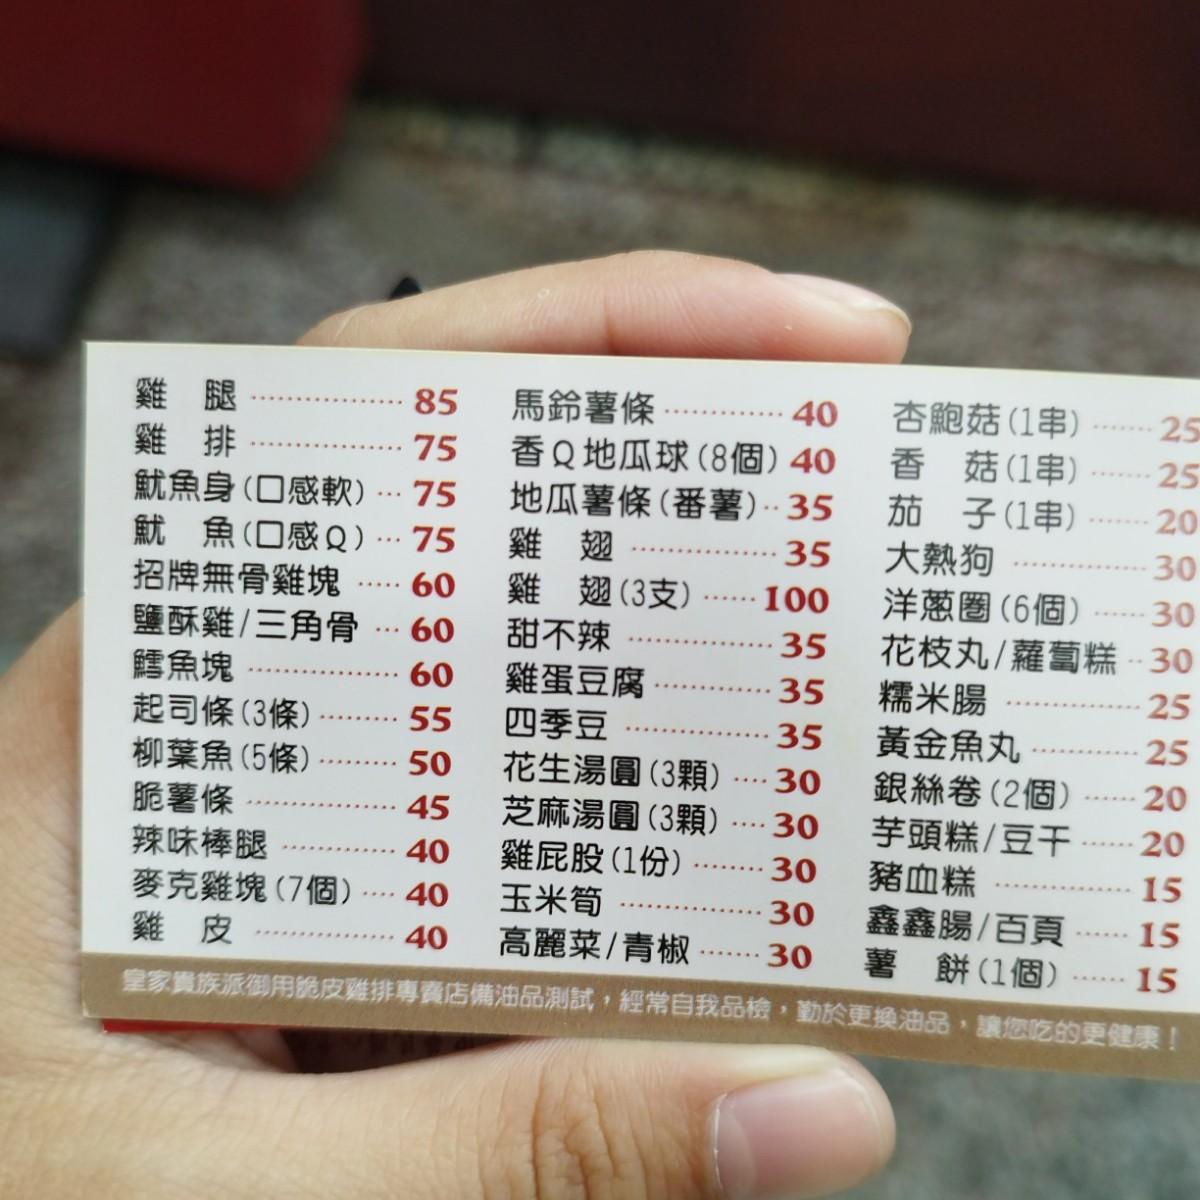 雞　腿 ⋯⋯⋯⋯⋯ 85
雞　排 ⋯⋯⋯⋯⋯ 75
魷魚身(口感軟) ⋯ 75
魷　魚(口感Q) ⋯ 75
招牌無骨雞塊 ⋯⋯ 60
鹽酥雞/三角骨 ⋯ 60
鱈魚塊 ⋯⋯⋯⋯⋯ 60
起司條(3條) ⋯⋯⋯ 55
柳葉魚(5條) ⋯⋯⋯ 50
脆薯條 ⋯⋯⋯⋯⋯ 45
辣味棒腿 ⋯⋯⋯⋯ 40
麥克雞塊(7個) ⋯⋯ 40
雞　皮 ⋯⋯⋯⋯⋯ 40
馬鈴薯條 ⋯⋯⋯⋯ 40
香Q地瓜球(8個) 40
地瓜薯條(番薯) ‥ 35
雞　翅 ⋯⋯⋯⋯⋯ 35
雞　翅(3支) ⋯⋯ 100
甜不辣 ⋯⋯⋯⋯⋯ 35
雞蛋豆腐 ⋯⋯⋯⋯ 35
四季豆 ⋯⋯⋯⋯⋯ 35
花生湯圓(3顆) ⋯⋯ 30
芝麻湯圓(3顆) ⋯⋯ 30
雞屁股(1份) ⋯⋯⋯ 30
玉米筍 ⋯⋯⋯⋯⋯ 30
高麗菜/青椒 ⋯⋯ 30
杏鮑菇(1串) ⋯⋯ 25
香　菇(1串) ⋯⋯ 25
茄　子(1串) ⋯⋯ 20
大熱狗 ⋯⋯⋯⋯⋯ 30
洋蔥圈(6個) ⋯⋯ 30
花枝丸/蘿蔔糕 ‥ 30
糯米腸 ⋯⋯⋯⋯⋯ 25
黃金魚丸 ⋯⋯⋯⋯ 25
銀絲卷(2個) ⋯⋯ 20
芋頭糕/豆干 ⋯⋯ 20
豬血糕 ⋯⋯⋯⋯⋯ 15
鑫鑫腸/百頁 ⋯⋯ 15
薯　餅(1個) ⋯⋯ 15
皇家貴族派御用脆皮雞排專賣店備油品測試，經常自我品檢，勤於更換油品，讓您吃的更健康！